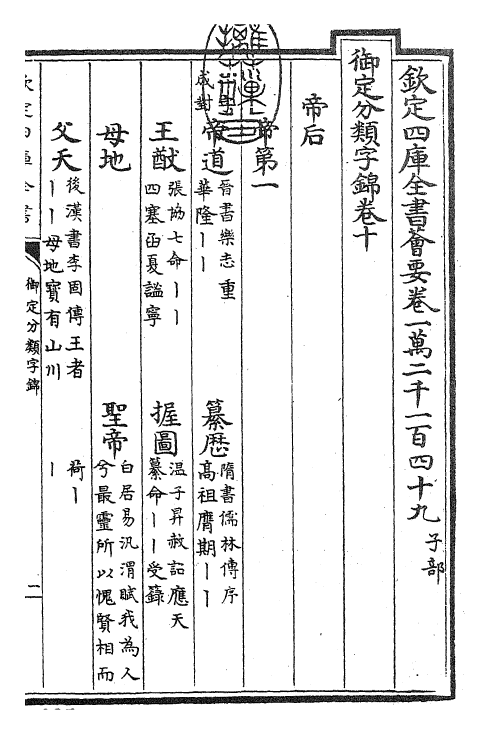 欽定四庫全書薈要卷一萬二千一百四十九 子部
御定分類字錦卷十
帝后
帝第一
成對
帝道 晉書樂志重
華隆丨丨
纂歷 隋書儒林傳序
高祖膺期丨丨
王猷 張協七命丨丨
四塞函夏謐寧
握圖 温子昇赦詔應天
纂命丨丨受籙
母地
聖帝 白居易汎渭賦我為人
兮最靈所以愧賢相而
荷丨
丨
父天 後漢書李固傳王者
丨丨母地寶有山川
欽定四庫全書
御定分類字錦
二